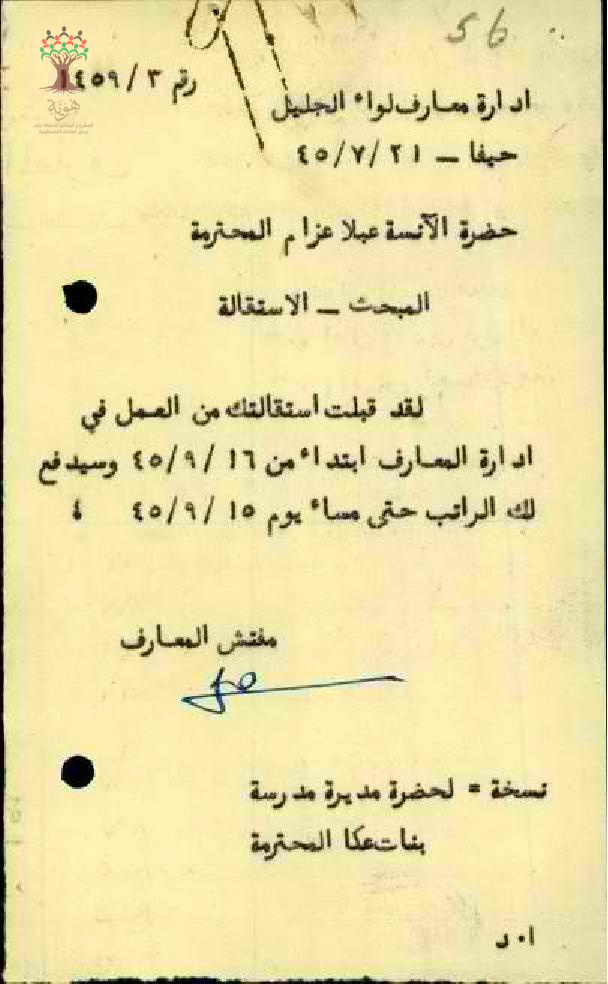 56
رقم ٣ / ١٤٥٩
هوية
ادارة معارف لواء الجليل
حيفا – ٢١ /٧ /٤٥
حضرة الآنسة عبلا عزام المحترمة
المبحث – الاستقالة
لقد قبلت استقالتك من العمل في
ادارة المعارف ابتداء من ١٦ /٩ /٤٥ وسيدفع
لك الراتب حتى مساء يوم ١٥ /٩ /٤٥ ٤
مفتش المعارف
نسخة = لحضرة مديرة مدرسة
بنات عكا المحترمة
ا٠ د